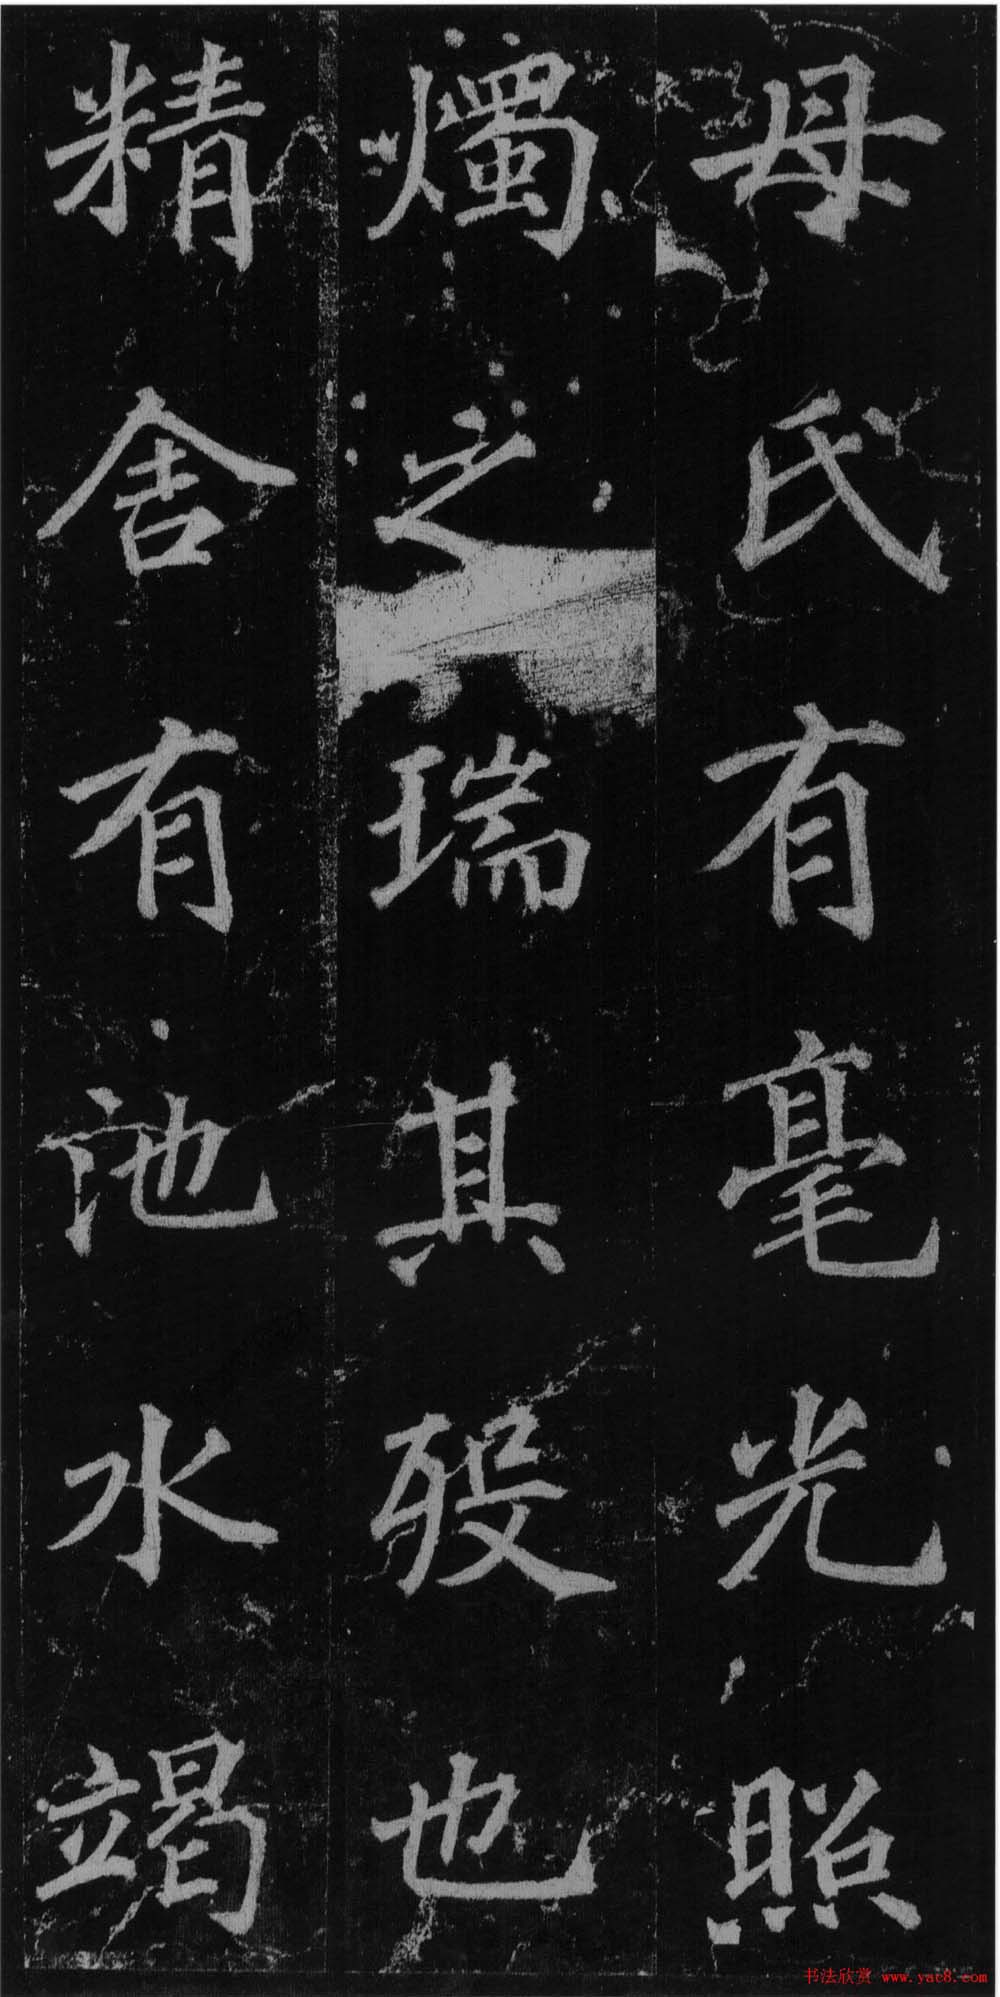 母氏有毫光照
燭之瑞其殁也
精舍有池水竭
书法欣赏 www.yac8.com